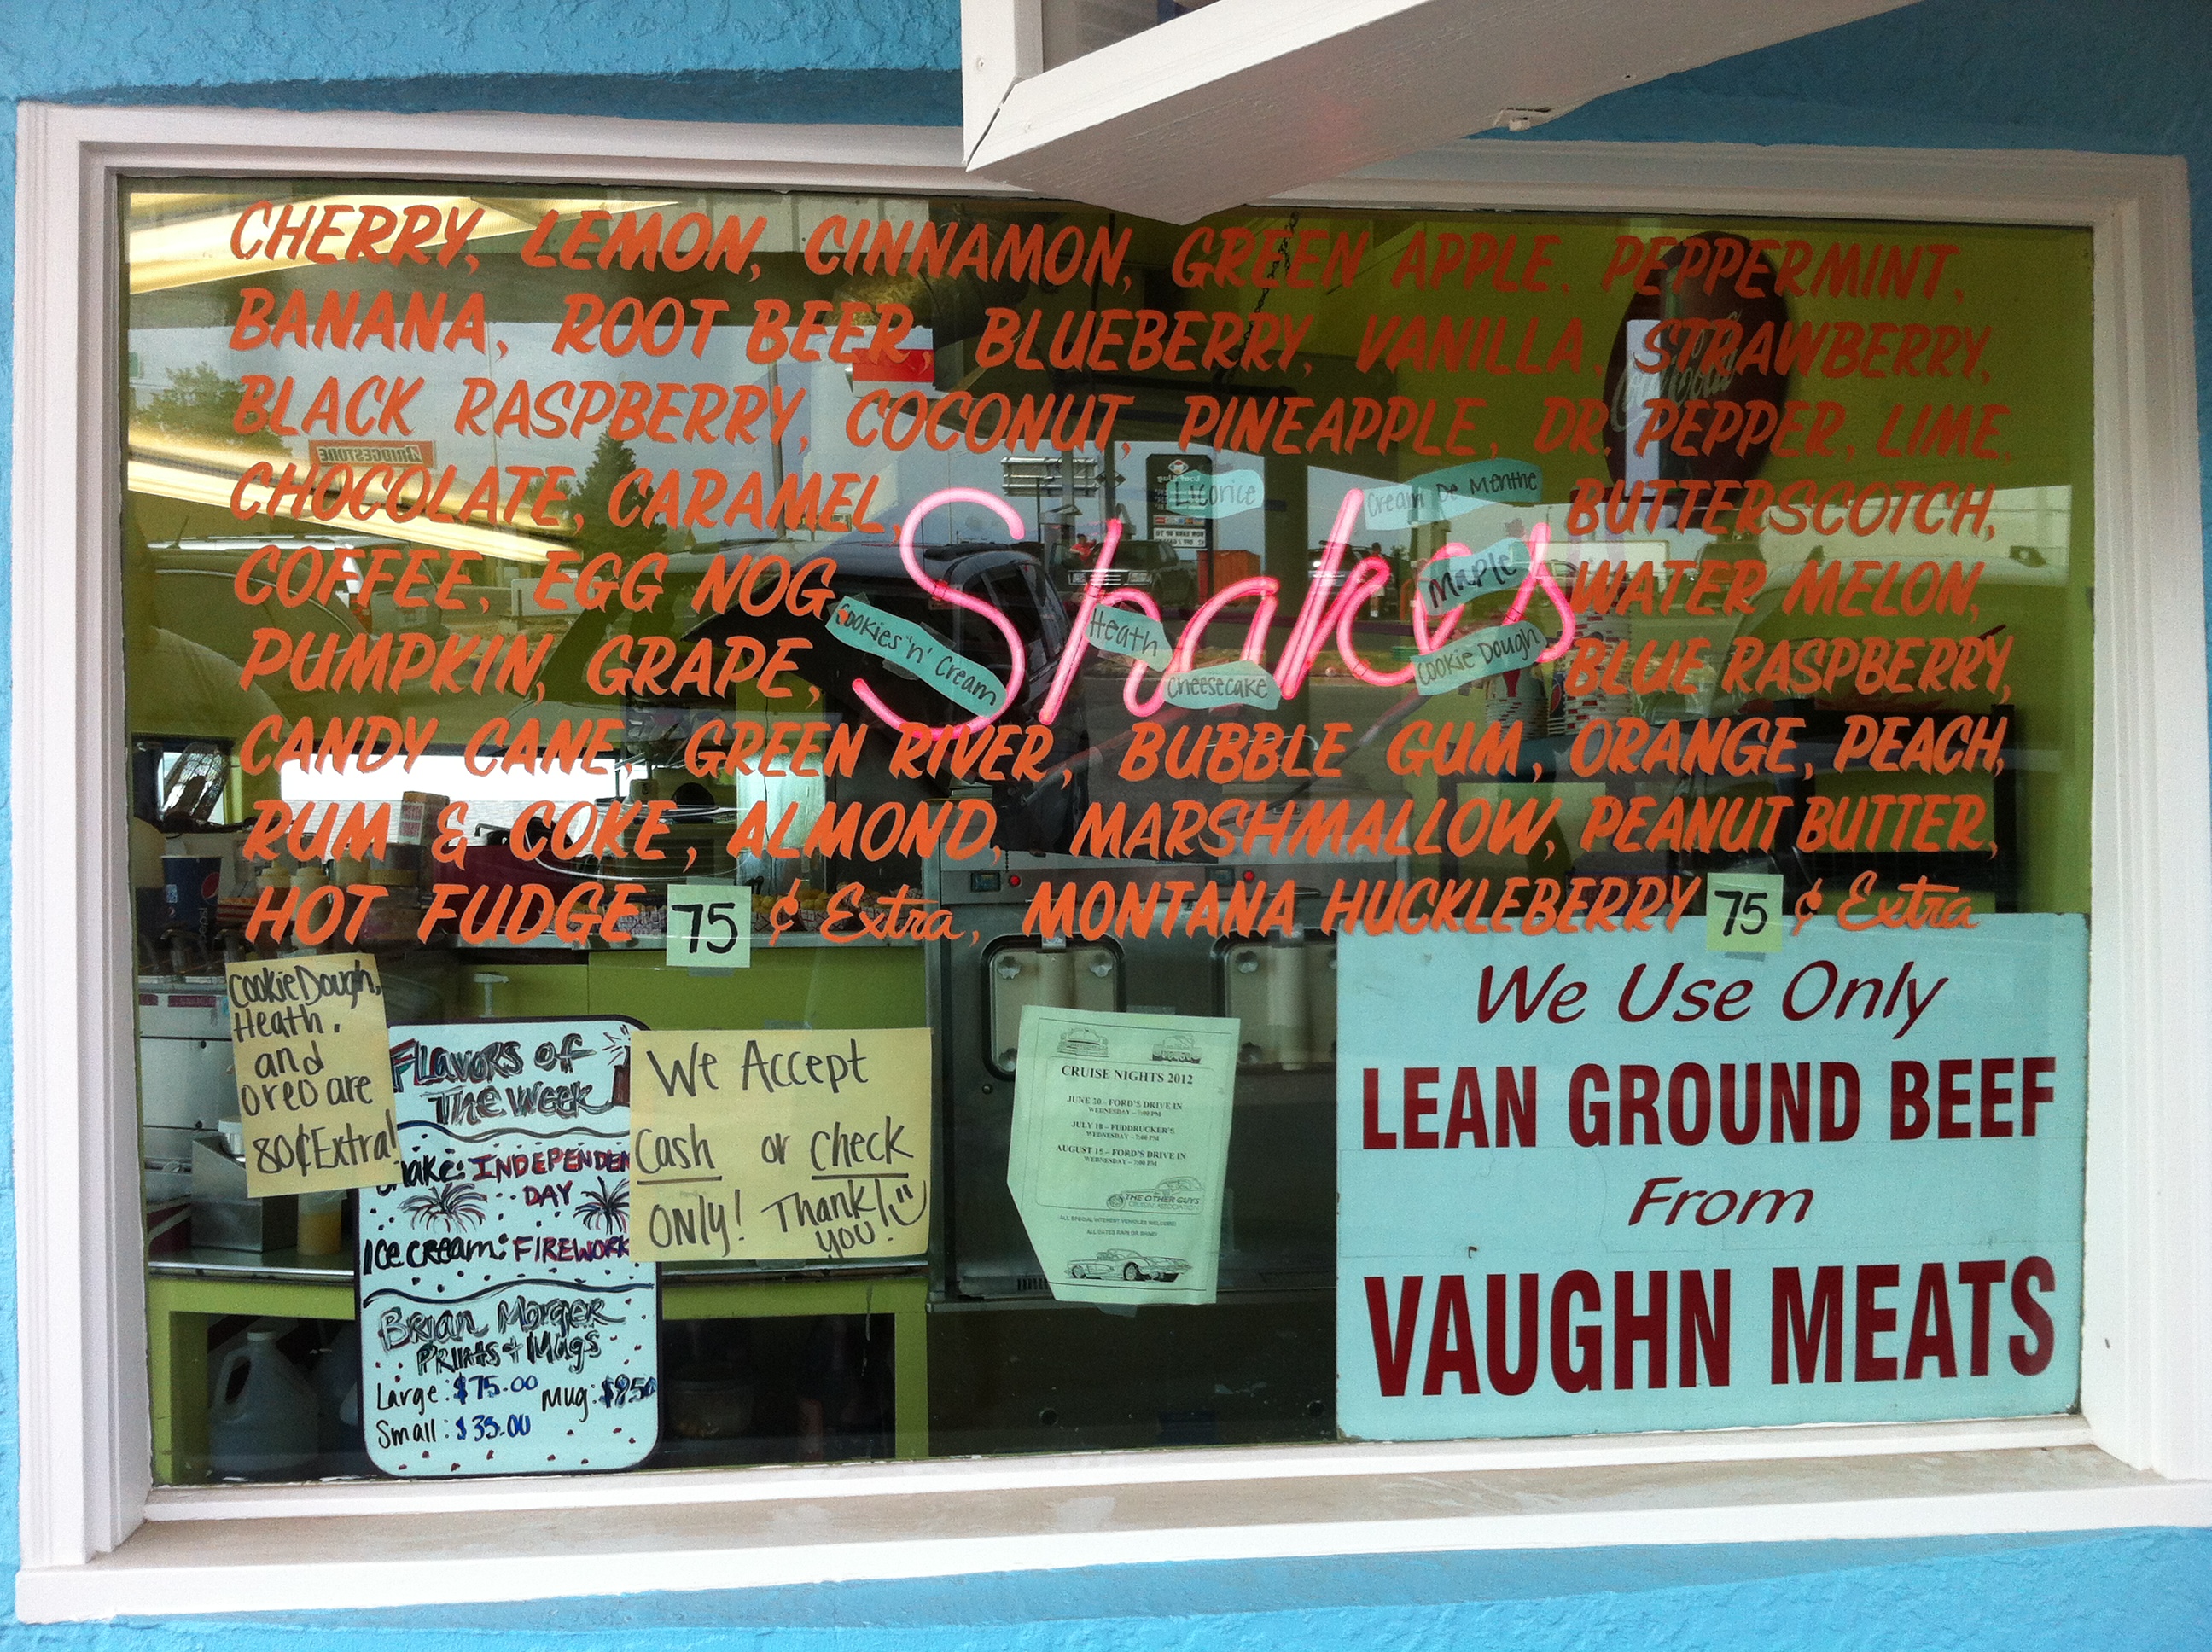 CHERRY, LEMON, CINNAMON, GREEN APPLE, PEPPERMINT,
BANANA, ROOT BEER, BLUEBERRY, VANILLA, STRAWBERRY,
BLACK RASPBERRY, COCONUT, PINEAPPLE, DR. PEPPER, LIME,
CHOCOLATE, CARAMEL, BUTTERSCOTCH,
COFFEE, EGG NOG WATER MELON,
PUMPKIN, GRAPE, BLUE RASPBERRY,
CANDY CANE, GREEN RIVER, BUBBLE GUM, ORANGE, PEACH,
RUM & COKE, ALMOND, MARSHMALLOW, PEANUT BUTTER,
HOT FUDGE 75 ¢ Extra, MONTANA HUCKLEBERRY 75 ¢ Extra
Shakes
Licorice
Cream De Menthe
Maple
Cookies 'n' Cream
Heath
Cheesecake
Cookie Dough
BRIDGESTONE
Cookie Dough,
Heath,
and
Oreo are
80¢ Extra!
FLavors of
The Week
hake: INDEPENDEN
DAY
Ice cream: FIREWORK
Brian Morger
Prints + Mugs
Large: $75.00 Mug: $9.50
Small: $35.00
We Accept
Cash or check
ONLY! Thank
you!
CRUISE NIGHTS 2012
JUNE 20 - FORD'S DRIVE IN
WEDNESDAY - 7:00 PM
JULY 18 - FUDDRUCKER'S
WEDNESDAY - 7:00 PM
AUGUST 15 - FORD'S DRIVE IN
WEDNESDAY - 7:00 PM
THE OTHER GUYS
CRUISIN' ASSOCIATION
ALL SPECIAL INTEREST VEHICLES WELCOME!
ALL DATES RAIN OR SHINE!
We Use Only
LEAN GROUND BEEF
From
VAUGHN MEATS